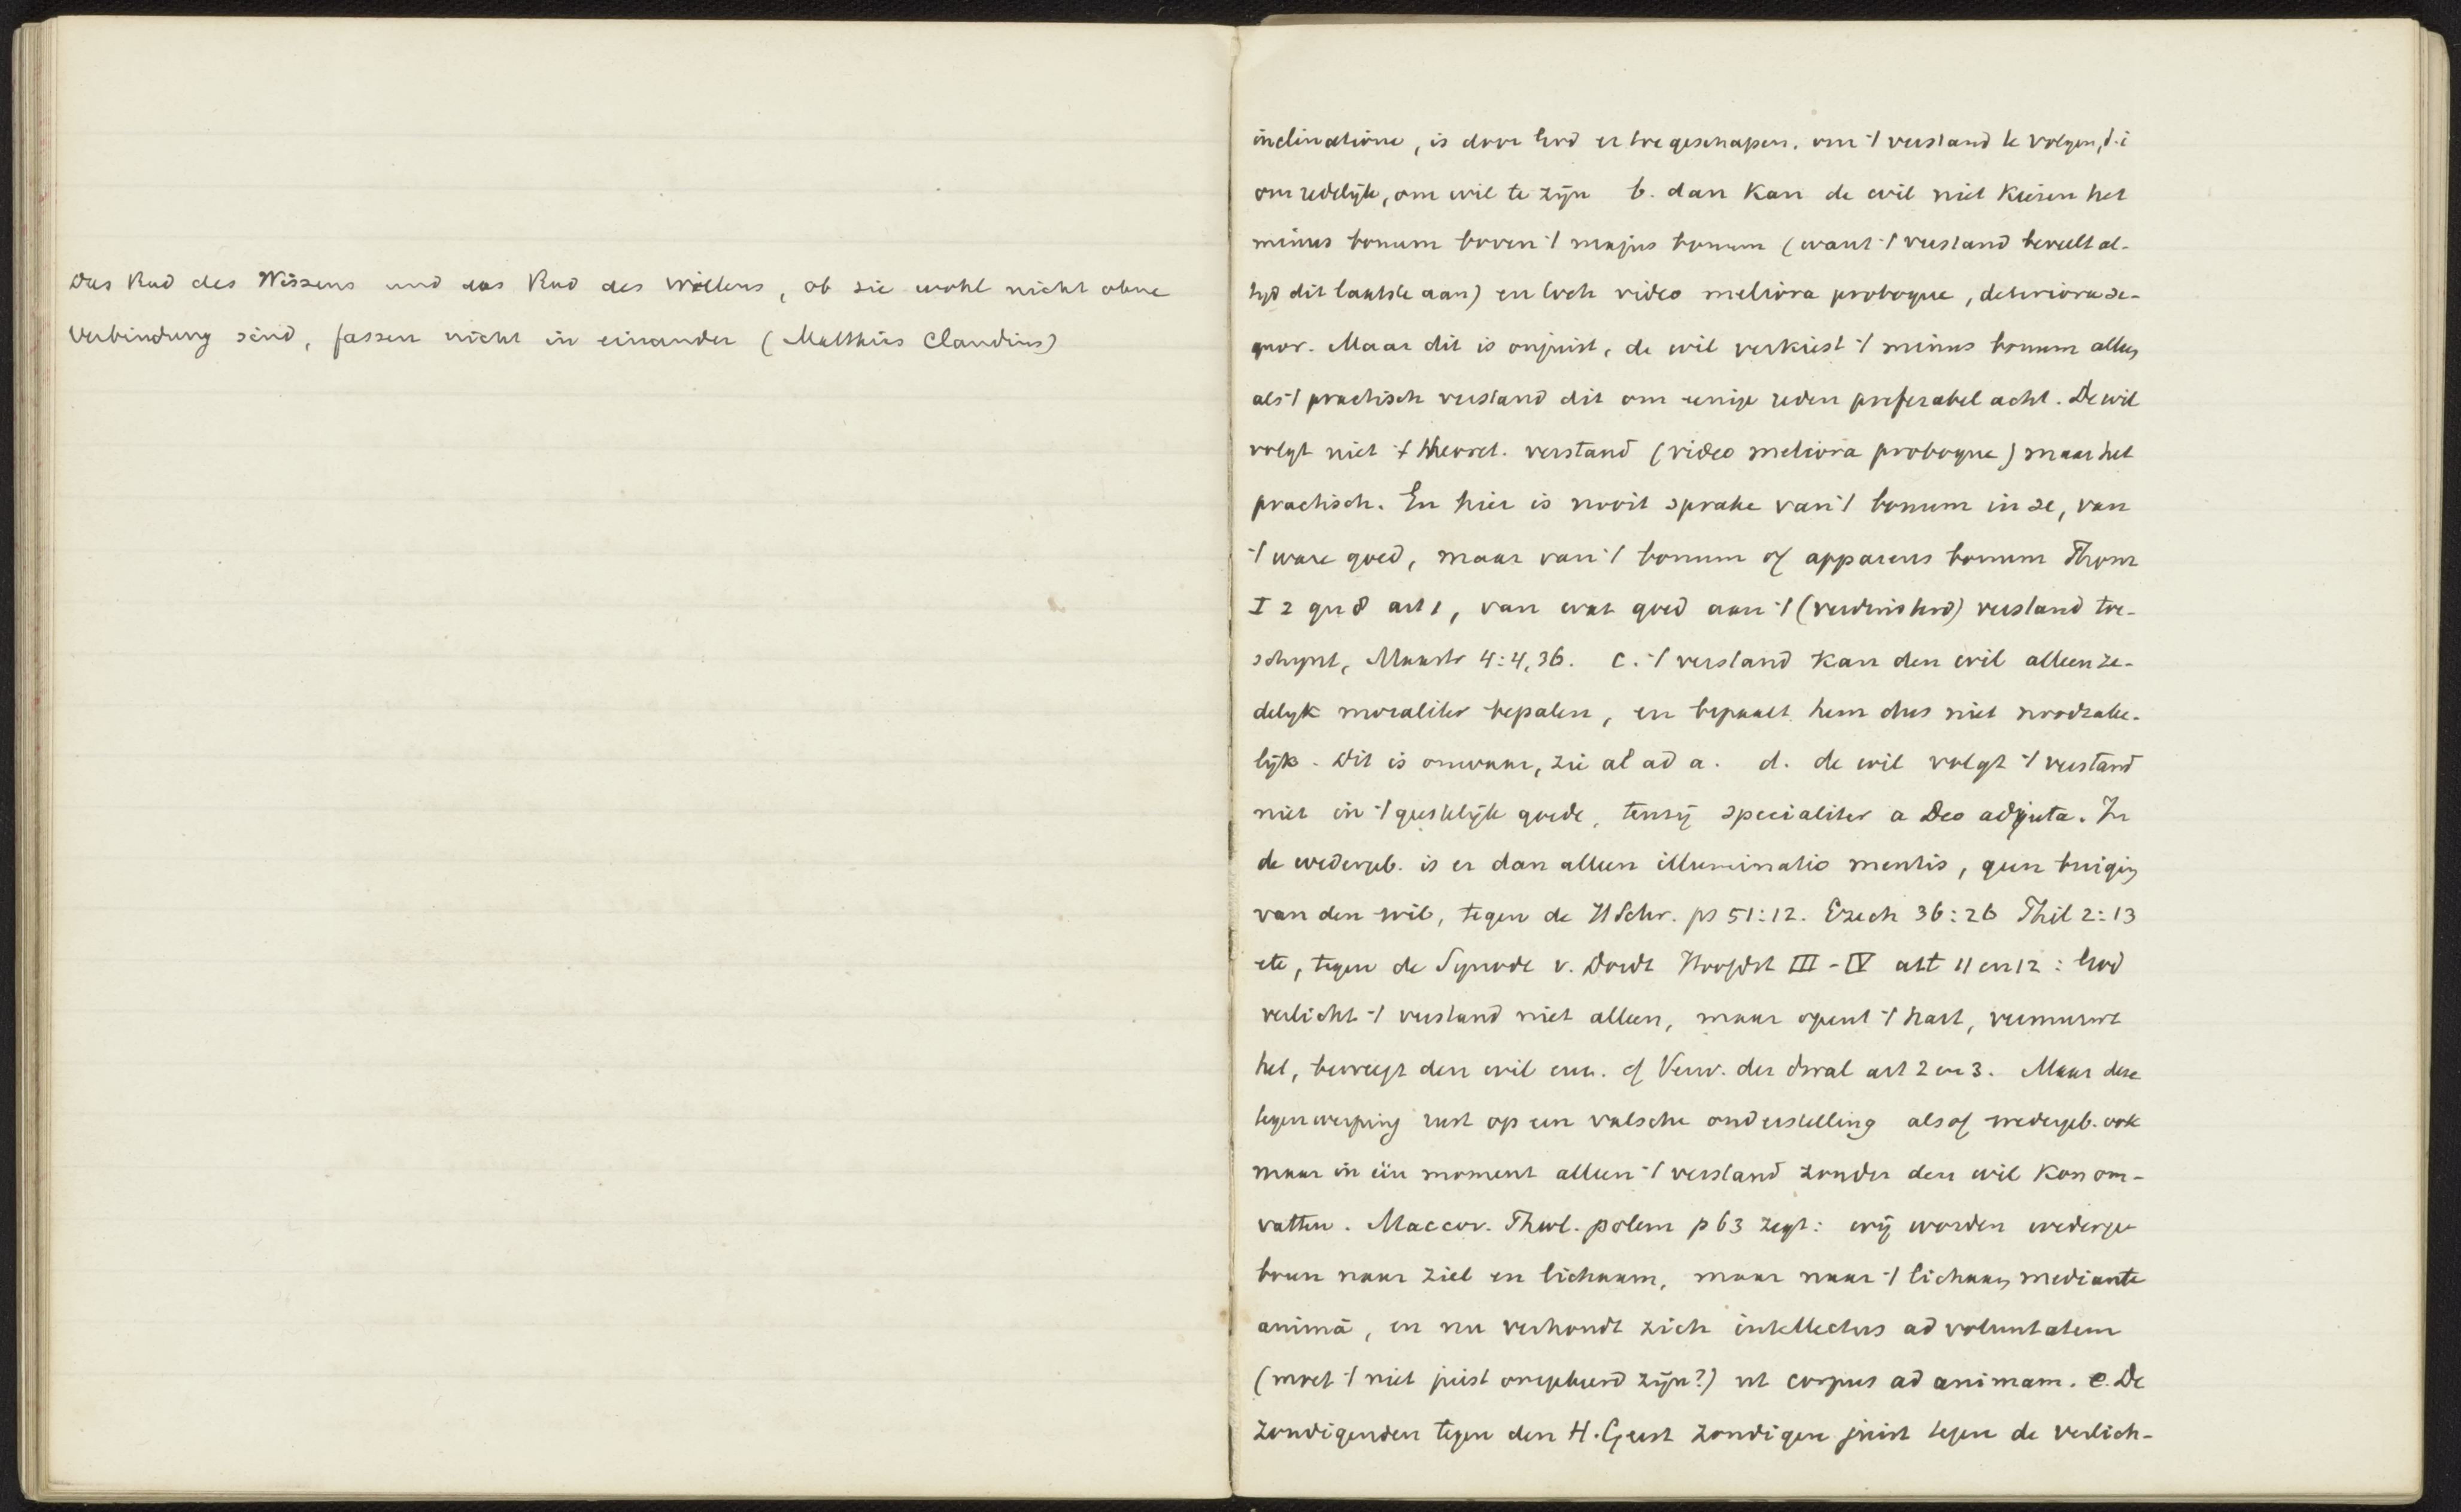 Das Rad des Wissens und das Rad des Willens, ob sie wohl nicht ohne
Verbindung sind, fassen nicht in einander (Matthias Claudius)
inclinatione, is door God er toe geschapen. om 't verstand te volgen, d.i
om redelijk, om wil te zijn b. dan kan de wil niet kiesen het
minus bonum boven 't majus bonum (want 't verstand beveelt al-
tijd dit laatste aan) en toch video meliora proboque, deteriora se-
quor. Maar dit is onjuist, de wil verkiest 't minus bonum alleen
als 't practisch verstand dit om eenige reden preferabel acht. De wil
volgt niet 't theoret. verstand (video meliora proboque) maar het
practisch. En hier is nooit sprake van 't bonum in se, van
't ware goed, maar van 't bonum of apparens bonum Thom
I 2 qu 8 art 1, van wat goed aan 't (verduisterd) verstand toe-
schijnt, Maastr 4:4, 36. c. 't verstand kan den wil alleen ze-
delyk moraliter bepalen, en bepaalt hem dus niet noodzake-
lijk. Dit is onwaar, zie al ad a. d. de wil volgt 't verstand
niet in 't geestelijk goede, tenzij specialiter a Deo adjuta. In
de wedergeb. is er dan alleen illuminatio mentis, geen buiging
van den wil, tegen de H Schr. ps 51:12. Ezech 36:26 Phil 2:13
etc, tegen de Synode v. Dordt Hoofdst III-IV art 11 en 12: God
verlicht 't verstand niet alleen, maar opent 't hart, vermurwt
het, beweegt den wil enz. cf Verw. der dwal art 2 en 3. Maar deze
tegenwerping rust op een valsche onderstelling alsof wedergeb. ook
maar in één moment alleen 't verstand zonder den wil kon om-
vatten. Maccov. Theol. polem p 63 zegt: wij worden wederge
boren naar ziel en lichaam, maar naar 't lichaam mediante
animâ, en nu verhoudt zich intellectus ad voluntatem
(moet 't niet juist omgekeerd zijn?) ut corpus ad animam. e. De
zondigenden tegen den H. Geest zondigen juist tegen de verlich-